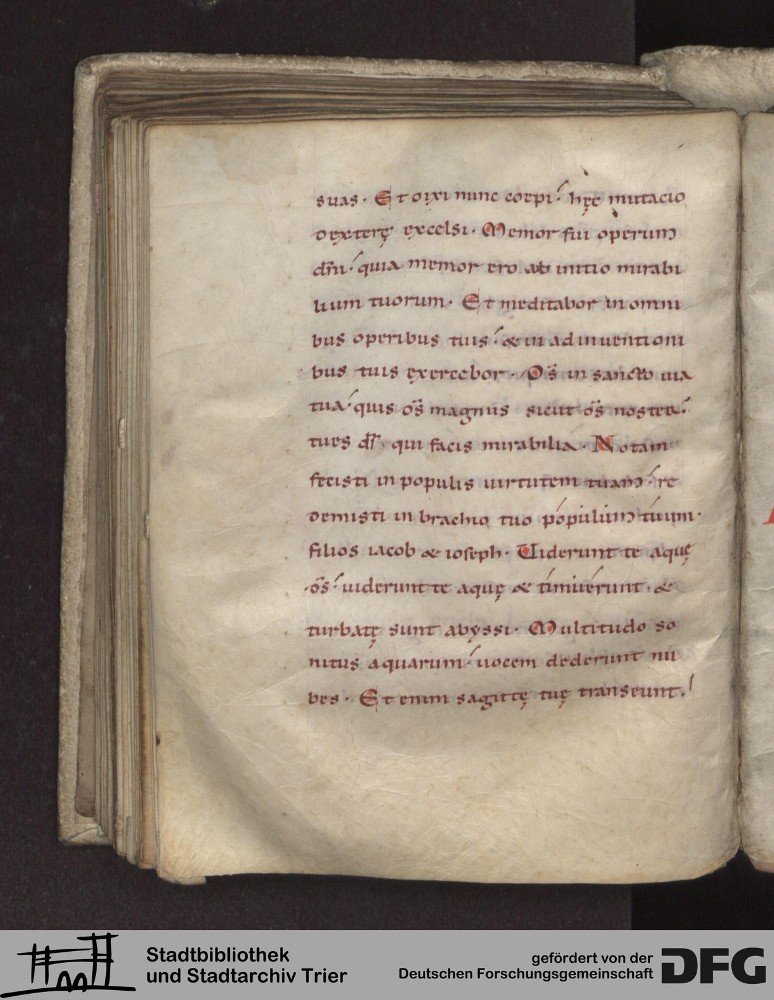 suas. Et dixi nunc coepi. hęc mutacio
dexterę excelsi. Memor fui operum
dn̄i. quia memor ero ab initio mirabi
lium tuorum. Et meditabor in omni
bus operibus tuis. & in adinuentioni
bus tuis exercebor. Ds̄ in sancto uia
tua. quis ds̄ magnus sicut ds̄ noster.
tu es ds̄ qui facis mirabilia. Notam
fecisti in populis uirtutem tuam. re
demisti in brachio tuo populum tuum.
filios iacob & ioseph. Uiderunt te aquę
ds̄. uiderunt te aquę & timuerunt. &
turbatę sunt abyssi. Multitudo so
nitus aquarum. uocem dederunt nu
bes. Et enim sagittę tuę transeunt.
Stadtbibliothek
und Stadtarchiv Trier
gefördert von der
Deutschen Forschungsgemeinschaft
DFG